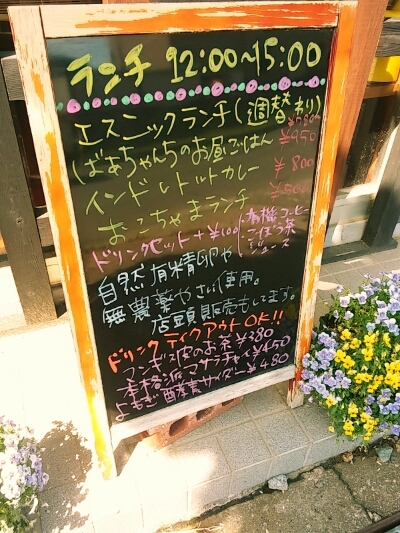 ランチ 12:00~15:00
エスニックランチ(週替わり)
ばあちゃんちのお昼ごはん ¥950
インドレトルトカレー ¥800
おこちゃまランチ ¥500
ドリンクセット+¥100 有機コーヒー
ごぼう茶
ジュース
自然有精卵や
無農薬やさい使用。
店頭販売もしてます。
ドリンクテイクアウトOK!!
マンギス皮のお茶¥380
本格派マサラチャイ¥450
よもぎ酵素サイダー¥480